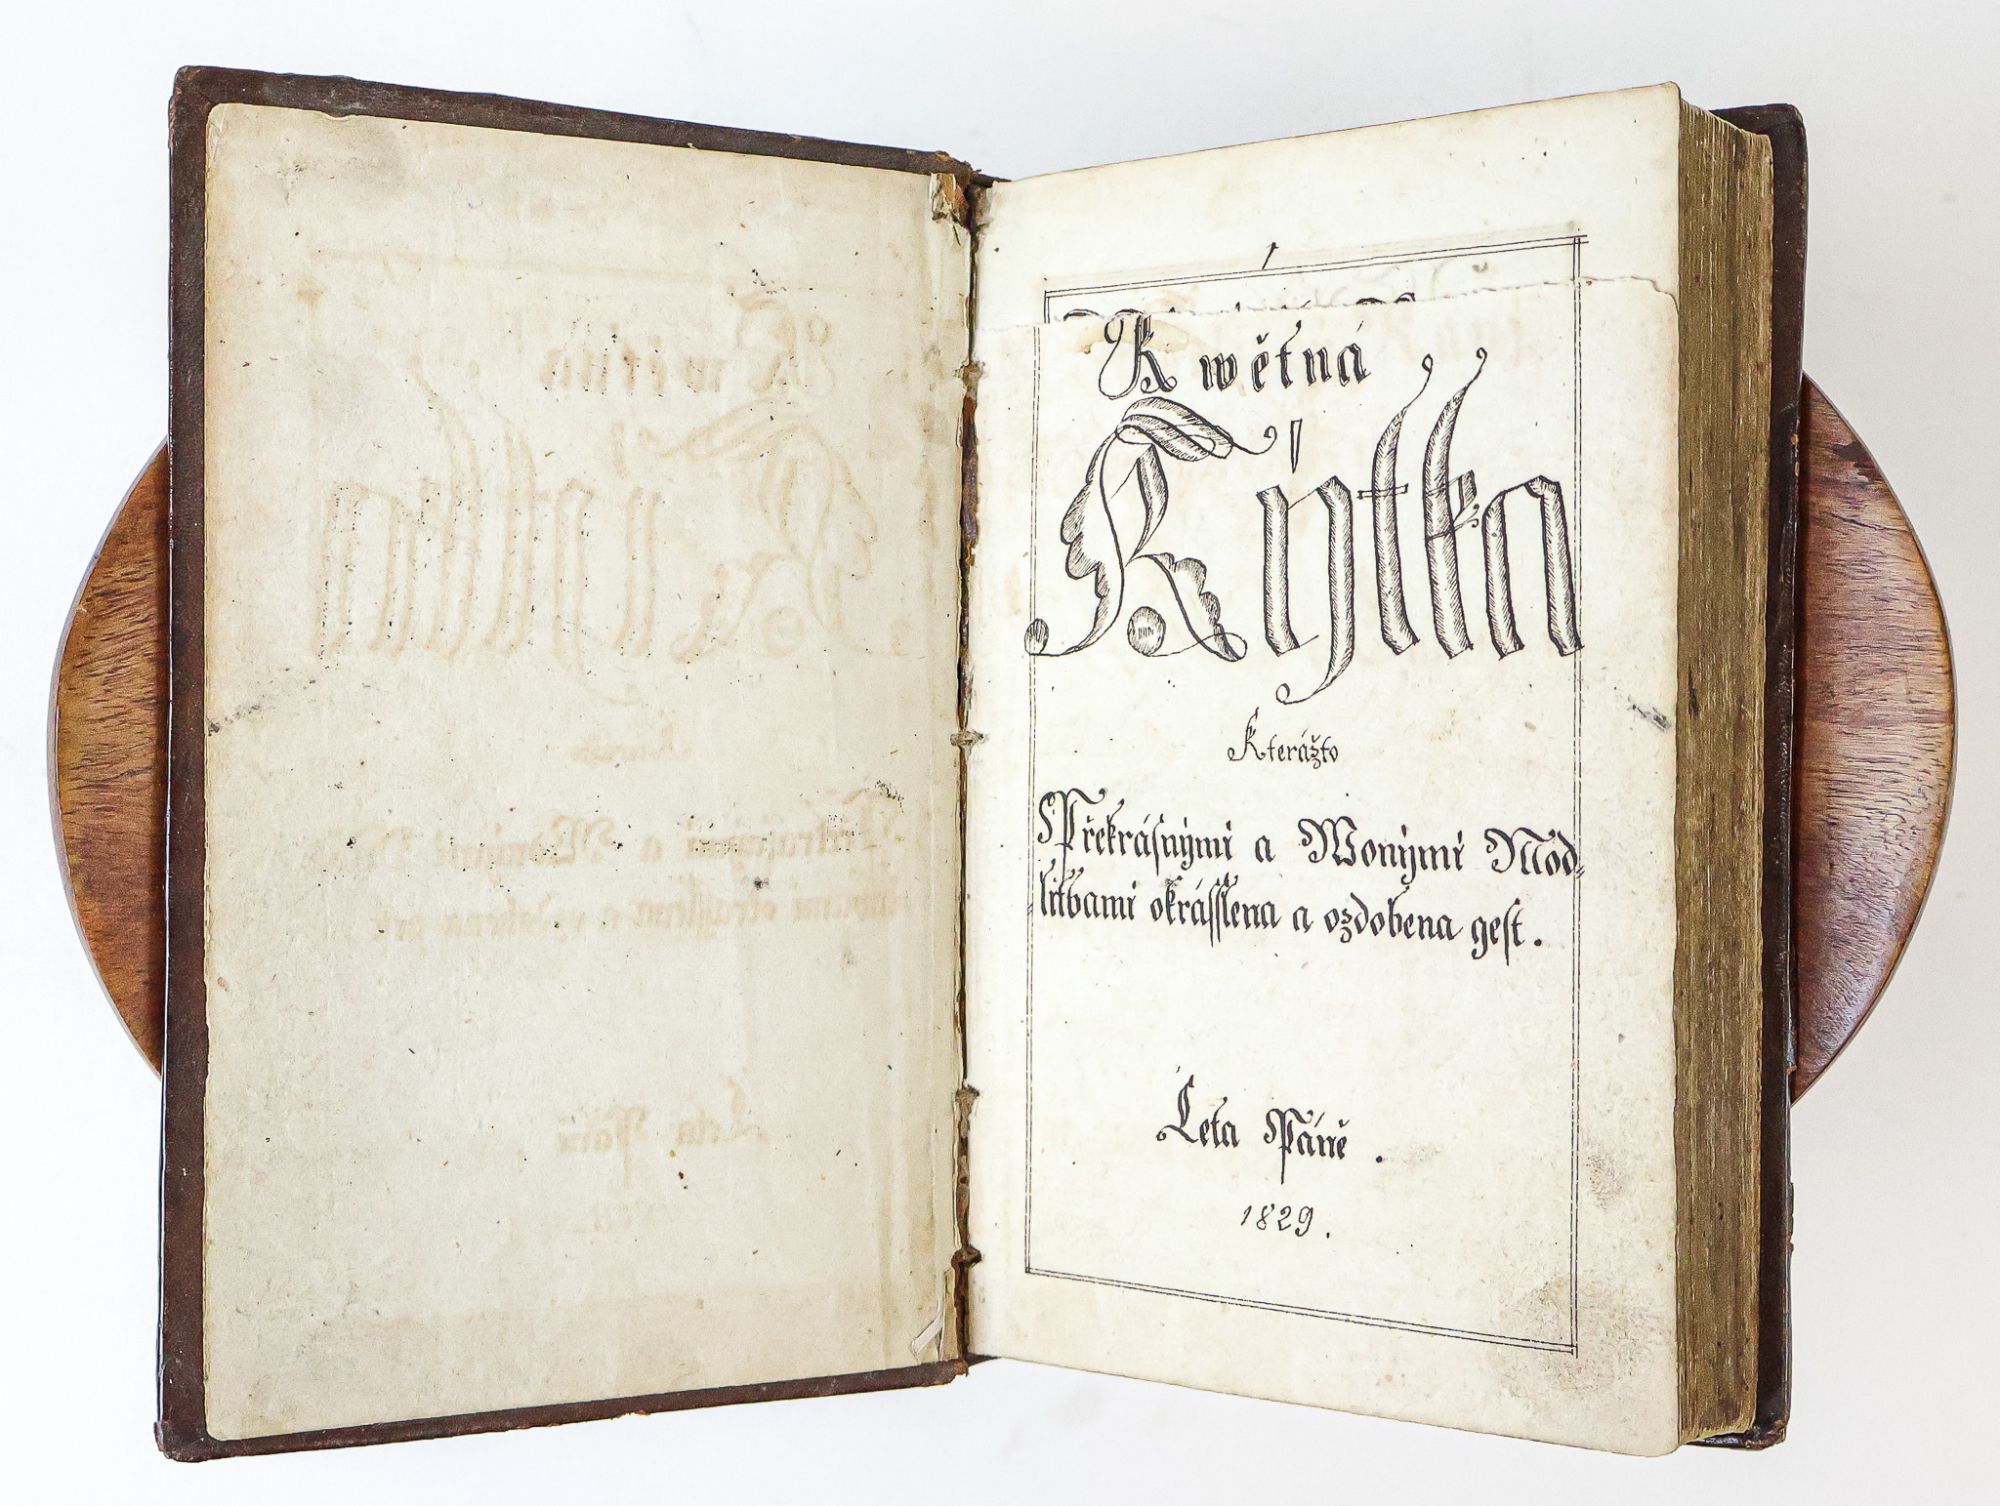 Kwětná
Kýtka
Kterážto
S Překráſnými a Wonými Mod⸗
litbami okráſſlena a ozdobena geſt.
Leta Páně.
1829.